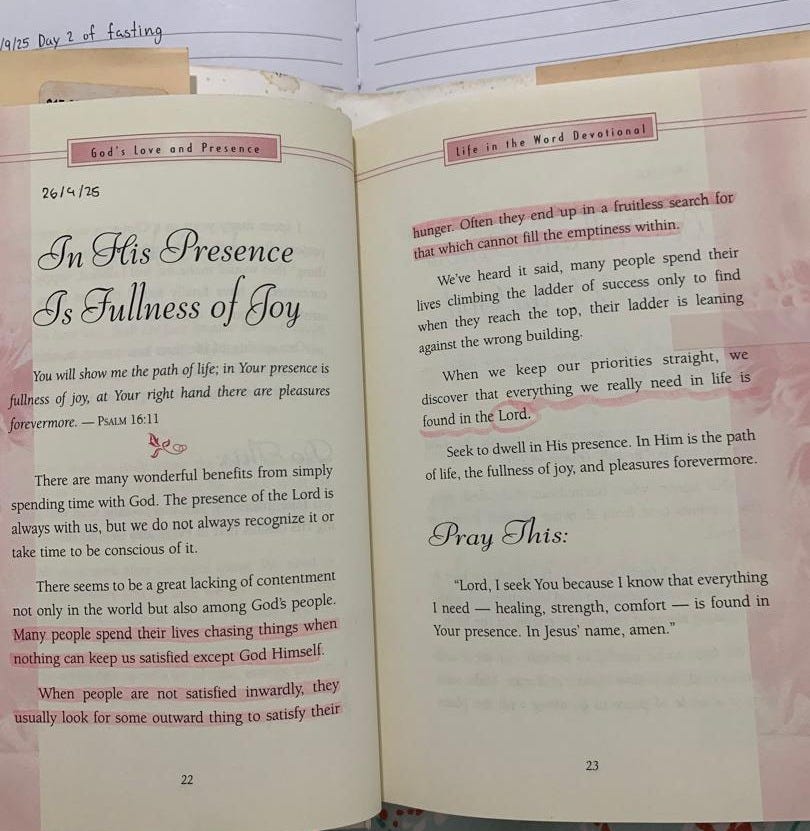 /9/25 Day 2 of fasting
God's Love and Presence
26/9/25
In His Presence
Is Fullness of Joy
You will show me the path of life; in Your presence is
fullness of joy, at Your right hand there are pleasures
forevermore. — PSALM 16:11
There are many wonderful benefits from simply
spending time with God. The presence of the Lord is
always with us, but we do not always recognize it or
take time to be conscious of it.
There seems to be a great lacking of contentment
not only in the world but also among God's people.
Many people spend their lives chasing things when
nothing can keep us satisfied except God Himself.
When people are not satisfied inwardly, they
usually look for some outward thing to satisfy their
22
Life in the Word Devotional
hunger. Often they end up in a fruitless search for
that which cannot fill the emptiness within.
We've heard it said, many people spend their
lives climbing the ladder of success only to find
when they reach the top, their ladder is leaning
against the wrong building.
When we keep our priorities straight, we
discover that everything we really need in life is
found in the Lord.
Seek to dwell in His presence. In Him is the path
of life, the fullness of joy, and pleasures forevermore.
Pray This:
"Lord, I seek You because I know that everything
I need — healing, strength, comfort — is found in
Your presence. In Jesus' name, amen."
23